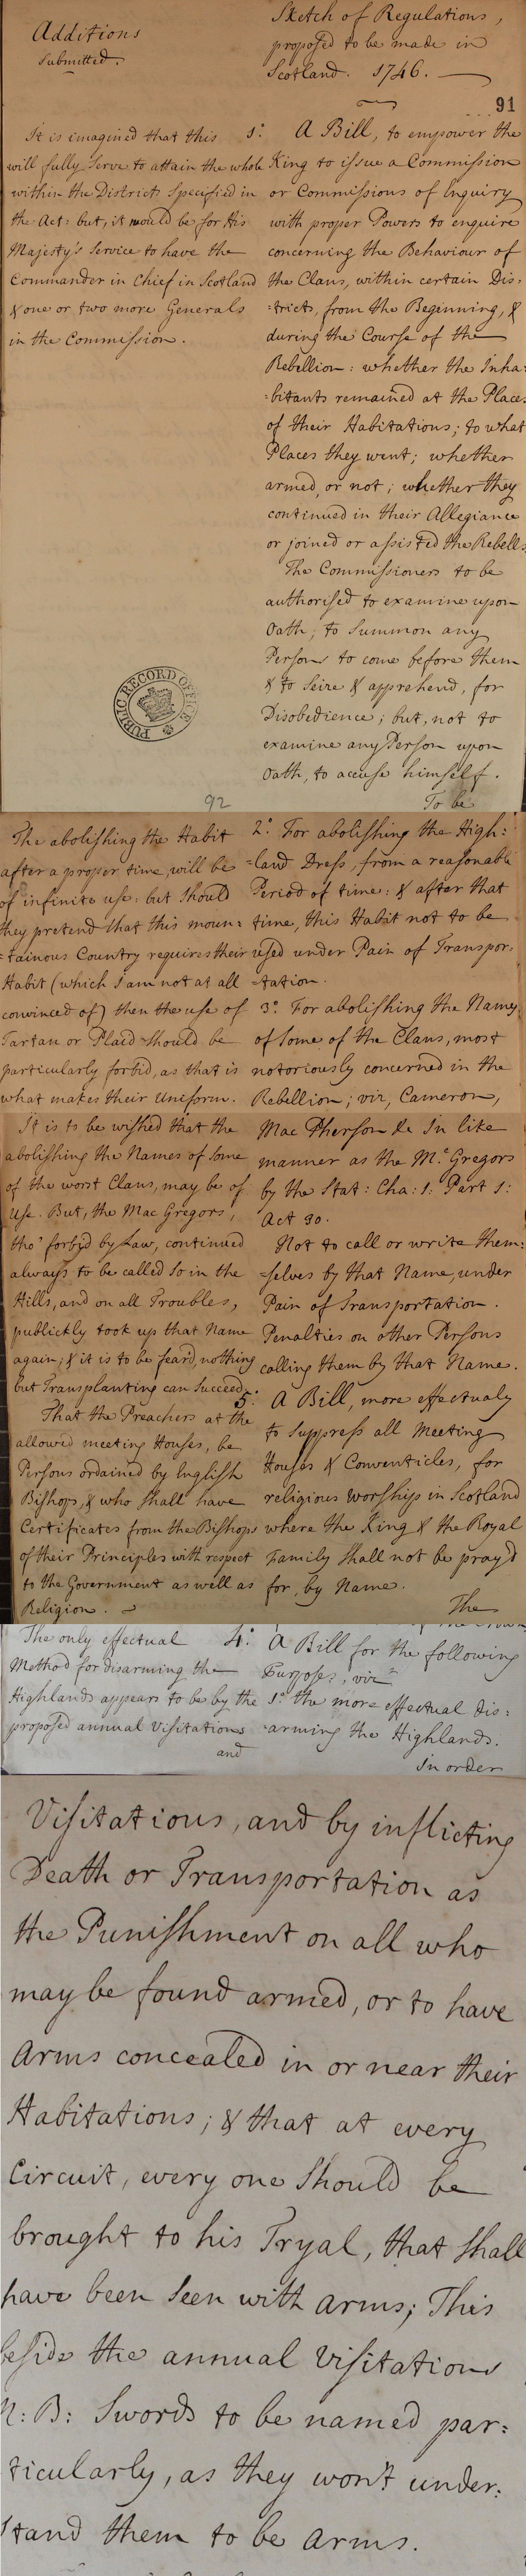 Additions
Submitted.
Sketch of Regulations,
proposed to be made in
Scotland. 1746.
91
It is imagined that this
will fully serve to attain the whole
within the Districts specified in
the Act: but, it would be for His
Majesty's Service to have the
Commander in Chief in Scotland
& one or two more Generals
in the Commission.
1º. A Bill, to empower the
King to issue a Commission
or Commissions of Enquiry
with proper Powers to enquire
concerning the Behaviour of
the Clans, within certain Dis:
=tricts, from the Beginning, &
during the Course of the
Rebellion: whether the Inha:
=bitants remained at the Places
of their Habitations; to what
Places they went; whether
armed, or not; whether they
continued in their Allegiance
or joined or assisted the Rebells.
The Commissioners to be
authorised to examine upon
Oath; to Summon any
Person to come before them
& to Seize & apprehend, for
Disobedience; but, not to
examine any Person upon
Oath, to accuse himself.
To be
PUBLIC RECORD OFFICE
92
The abolishing the Habit
after a proper time, will be
of infinite use: but should
they pretend that this moun:
=tainous Country requires their
Habit (which I am not at all
convinced of) then the use of
Tartan or Plaid should be
particularly forbid, as that is
what makes their Uniform.
It is to be wished that the
abolishing the Names of some
of the worst Clans, may be of
use. But, the Mac Gregors,
tho' forbid by Law, continued
always to be called so in the
Hills, and on all Troubles,
publickly took up that Name
again; & it is to be fear'd, nothing
but Transplanting can Succeed.
That the Preachers at the
allowed meeting Houses, be
Persons ordained by English
Bishops, & who shall have
Certificates from the Bishops
of their Principles with respect
to the Government as well as
Religion.
2º. For abolishing the High:
=land Dress, from a reasonable
Period of time: & after that
time, this Habit not to be
used under Pain of Transpor:
=tation.
3º. For abolishing the Names
of some of the Clans, most
notoriously concerned in the
Rebellion; viz, Cameron,
Mac Pherson &c In like
manner as the Mc. Gregors
by the Stat: Cha: 1: Part 1:
Act 30.
Not to call or write them:
=selves by that Name, under
Pain of Transportation.
Penalties on other Persons
calling them by that Name.
5º. A Bill, more effectualy
to suppress all Meeting
Houses & Conventicles, for
religious Worship in Scotland
where the King & the Royal
Family shall not be pray'd
for, by Name.
The
The only effectual
Method for disarming the
Highlands appears to be by the
proposed annual Visitations
and
4º. A Bill for the following
Purposes, viz
1º. the more effectual dis:
=arming the Highlands.
In order
Visitations, and by inflicting
Death or Transportation as
the Punishment on all who
may be found armed, or to have
Arms concealed in or near their
Habitations; & that at every
Circuit, every one should be
brought to his Tryal, that shall
have been seen with arms; This
beside the annual Visitations
N: B: Swords to be named par:
ticularly, as they won't under:
stand them to be Arms.